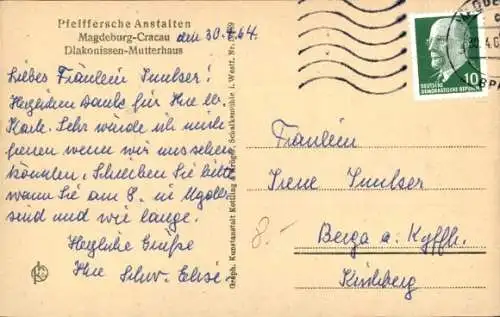 Pfeiffersche Anstalten
Magdeburg-Cracau
Diakonissen-Mutterhaus
den 30.4.64.
Liebes Fräulein
Herzlichen Dank für Ihre lb.
Karte. Sehr würde ich mich
freuen wenn wir uns sehen
könnten. Schreiben Sie bitte
wann Sie am 8. in Mgdbg.
sind und wie lange.
Herzliche Grüße
Ihre Schw. Elise.
Graph. Kunstanstalt Kettling & Krüger, Schalksmühle i. Westf. Nr.
10
DEUTSCHE
DEMOKRATISCHE REPUBLIK
Fräulein
Irene
8.-
Berga a. Kyffh.
Kirchberg